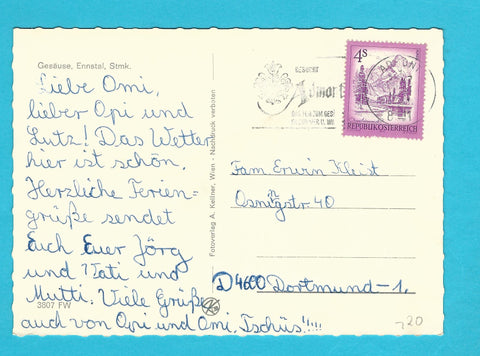 Gesäuse, Ennstal, Stmk.
Liebe Omi,
lieber Opi und
Lutz! Das Wetter
hier ist schön.
Herzliche Ferien=
grüße sendet
Euch Euer Jörg
und Vati und
Mutti. Viele Grüße
auch von Opi und Omi. Tschüs!!!!
3807 FW
Fotoverlag A. Kellner, Wien - Nachdruck verboten
BESUCHT
Admont
4S
REPUBLIK ÖSTERREICH
Fam. Erwin Kleist
Osningstr. 40
D 4600 Dortmund-1.
220